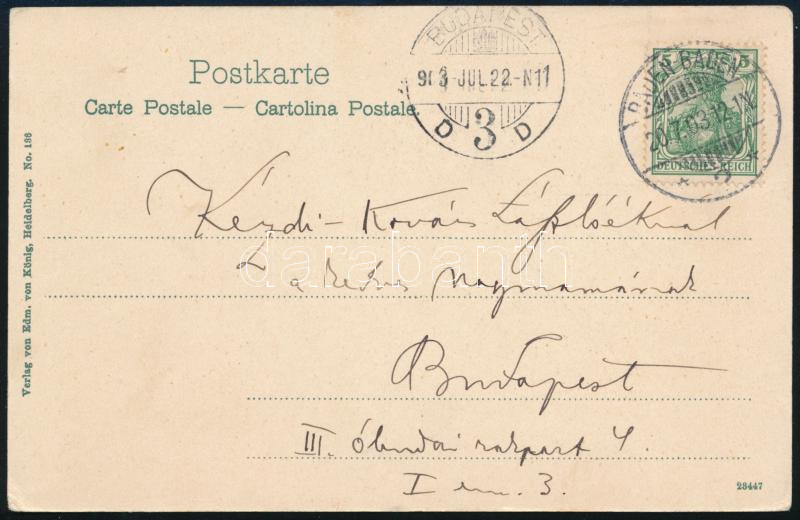 Postkarte
Carte Postale — Cartolina Postale.
BUDAPEST
903 JUL.22.-N11
D 3 D
BADEN-BADEN
20.7.03.12-1N
* 2 *
5 5
DEUTSCHES REICH
Kézdi-Kovács Lászlóéknak
a kedves nagymamának
Budapest
III. óbudai rakpart 4.
I em. 3.
darabanth
Verlag von Edm. von König, Heidelberg. No. 136
23447